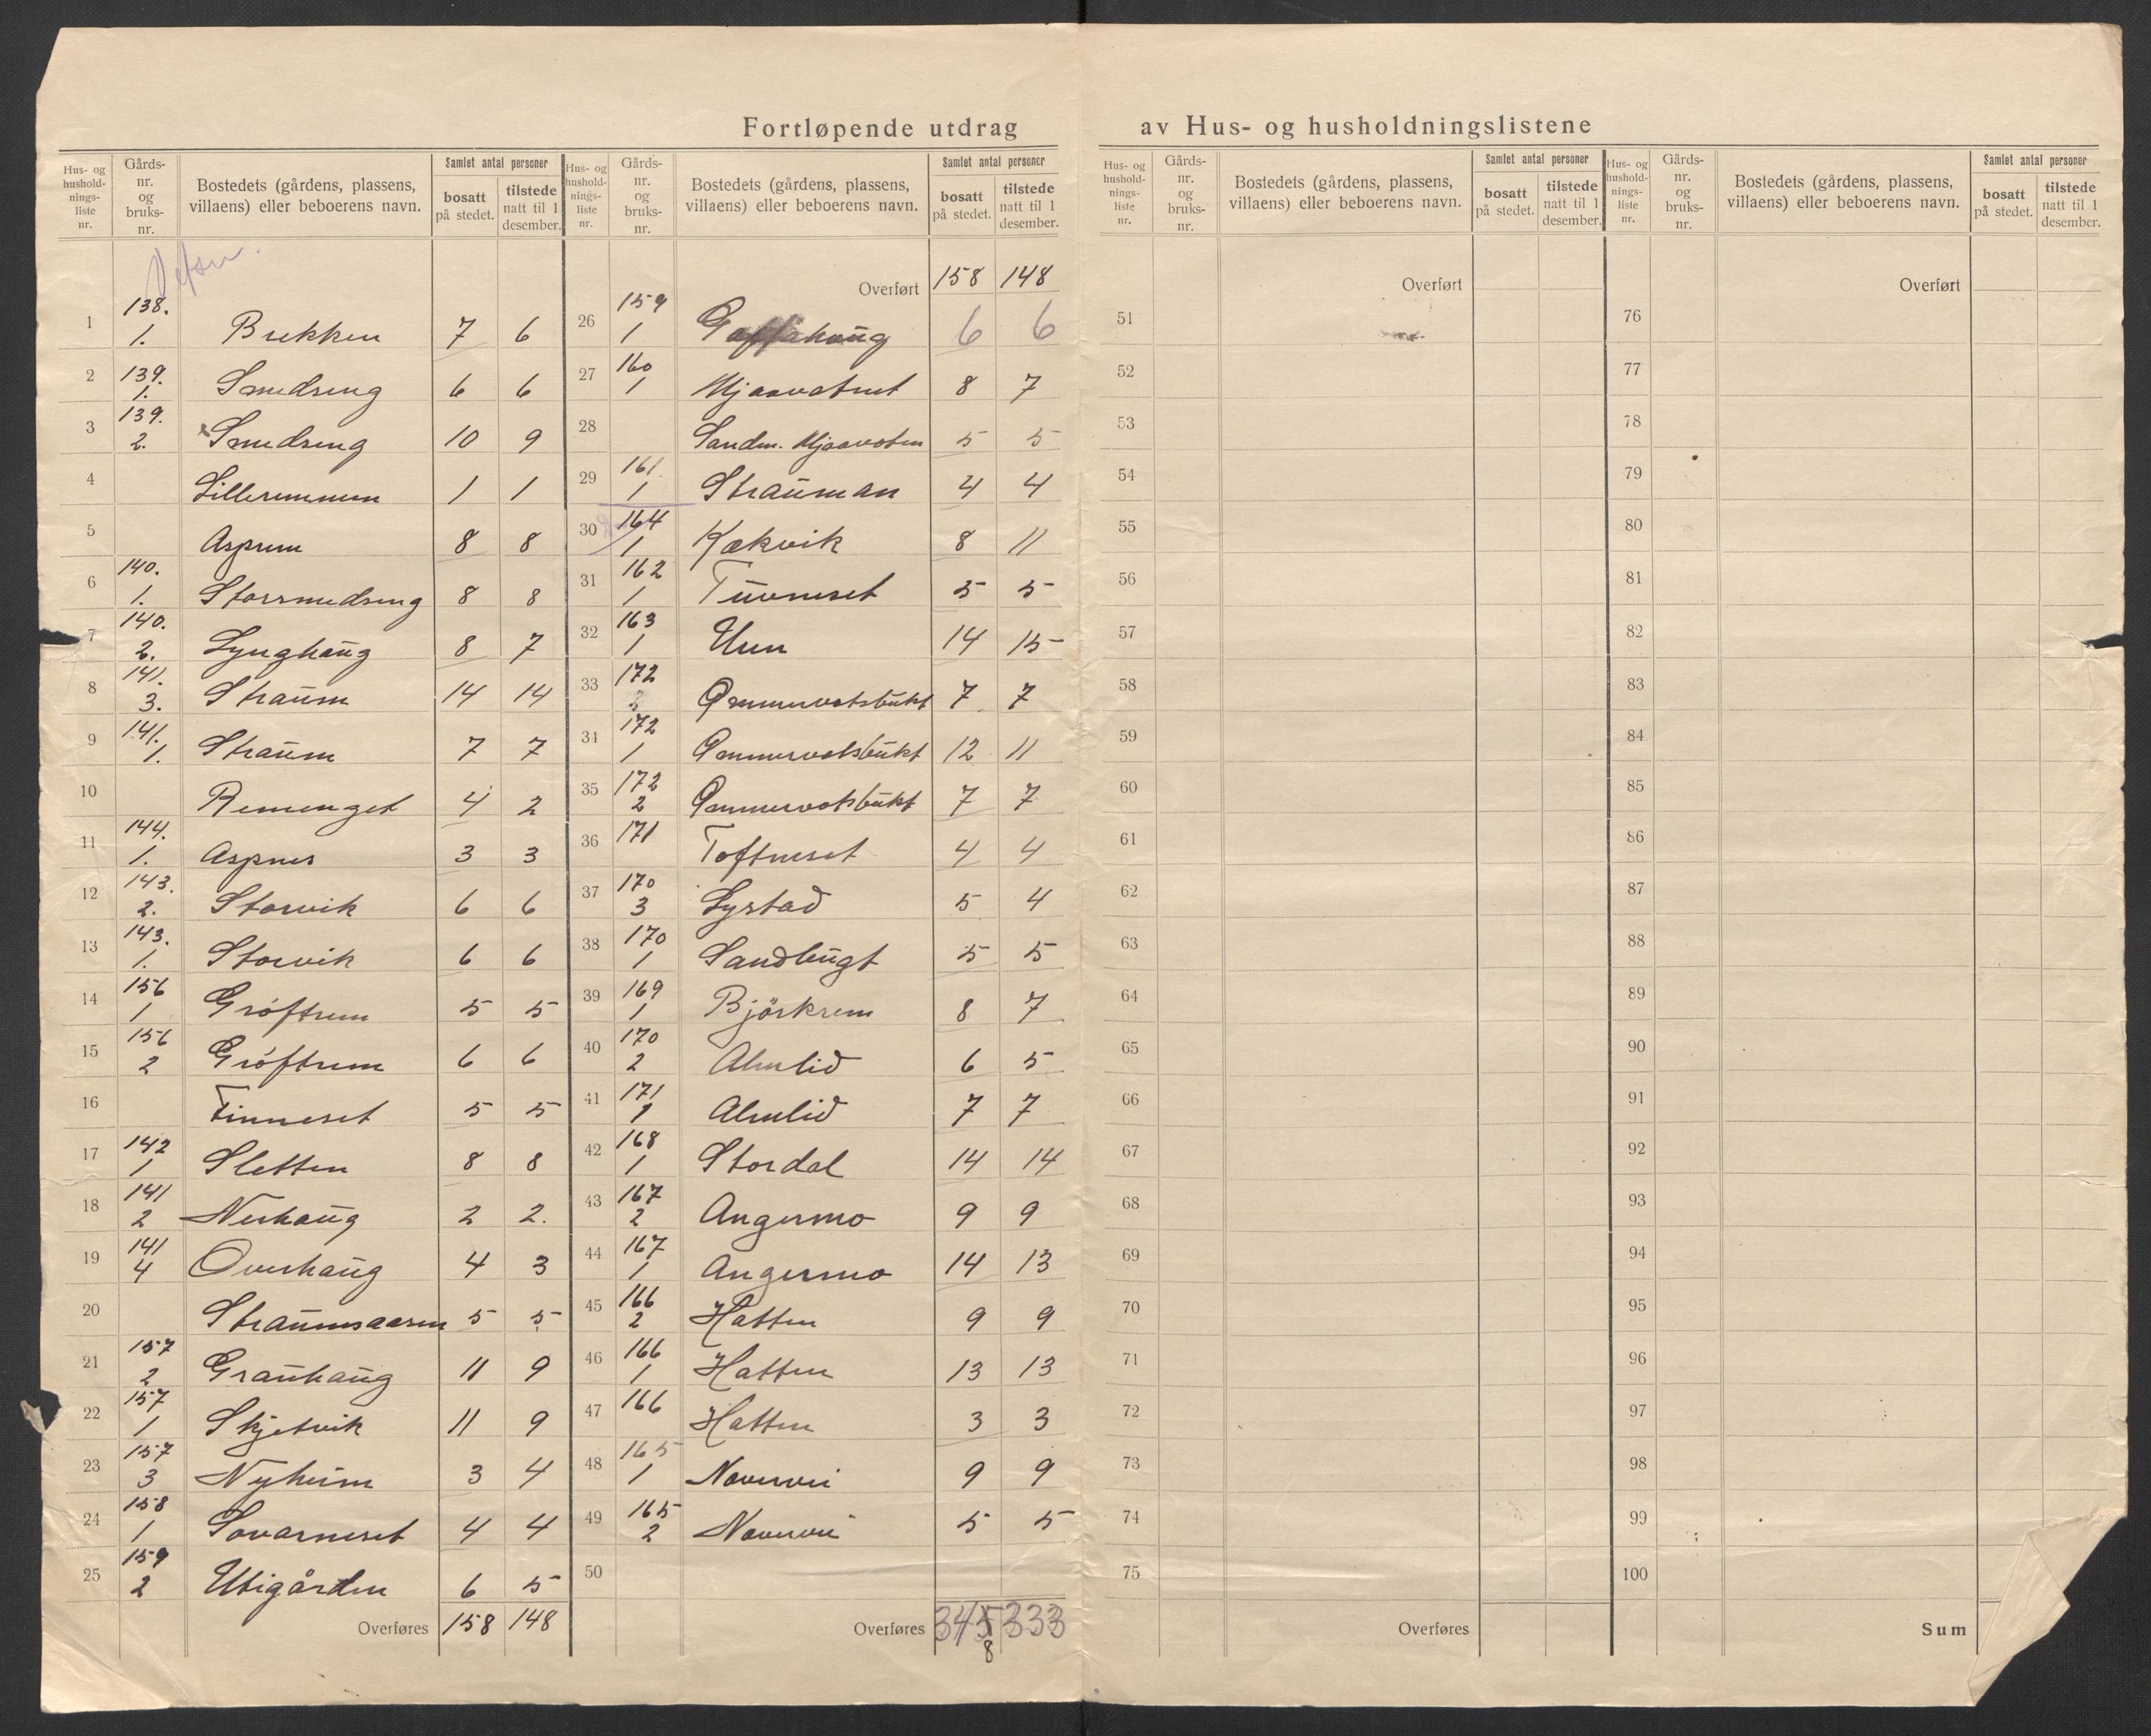 Fortløpende utdrag av Hus- og husholdningslistene
Hus- og hushold-nings-liste nr. | Gårds-nr. og bruks-nr. | Bostedets (gårdens, plassens, villaens) eller beboerens navn. | Samlet antal personer | bosatt på stedet. | tilstede natt til 1 desember.
Hus- og hushold-nings-liste nr. | Gårds-nr. og bruks-nr. | Bostedets (gårdens, plassens, villaens) eller beboerens navn. | Samlet antal personer | bosatt på stedet. | tilstede natt til 1 desember.
1 138. 1. Brekken 7 6
2 139. 1. Smedseng 6 6
3 139. 2. Smedseng 10 9
4 Lilleremmen 1 1
5 Asprem 8 8
6 140. 1. Storsmedseng 8 8
7 140. 2. Lynghaug 8 7
8 141. 3. Straum 14 14
9 141. 1. Straum 7 7
10 Remenget 4 2
11 144. 1. Aspnes 3 3
12 143. 2. Storvik 6 6
13 143. 1. Storvik 6 6
14 156 1 Grøftrem 5 5
15 156 2 Grøftrem 6 6
16 Finneset 5 5
17 142 1 Sletten 8 8
18 141 2 Nerhaug 2 2.
19 141 4 Overhaug 4 3
20 Straumsaasen 5 5
21 157 2 Grauhaug 11 9
22 157 1 Skjetvik 11 9
23 157 3 Nyheim 3 4
24 158 1 Sovarneset 4 4
25 159 2 Utigården 6 5
Overføres 158 148
Overført 158 148
26 159 1 6 6
27 160 1 Mjaavatnet 8 7
28 Sandm. Mjaavaten 5 5
29 161 1 Strauman 4 4
30 164 1 Kækvik 8 11
31 162 1 Tuvneset 5 5
32 163 1 Unn 14 15
33 172 3 Ømmervatsbukt 7 7
31 172 1 Ømmervatsbukt 12 11
35 172 2 Ømmervatsbukt 7 7
36 171 Toftneset 4 4
37 170 3 Lystad 5 4
38 170 1 Sandbugt 5 5
39 169 1 Björkrem 8 7
40 170 2 Almlid 6 5
41 171 1 Almlid 7 7
42 168 1 Stordal 14 14
43 167 2 Angermo 9 9
44 167 1 Angermo 14 13
45 166 2 Hatten 9 9
46 166 1 Hatten 13 13
47 166 Hatten 3 3
48 165 1 Nævervei 9 9
49 165 2 Nævervei 5 5
50
Overføres 345 8 333
Hus- og hushold-nings-liste nr. | Gårds-nr. og bruks-nr. | Bostedets (gårdens, plassens, villaens) eller beboerens navn. | Samlet antal personer | bosatt på stedet. | tilstede natt til 1 desember.
Overført
51
52
53
54
55
56
57
58
59
60
61
62
63
64
65
66
67
68
69
70
71
72
73
74
75
Overføres
Hus- og hushold-nings-liste nr. | Gårds-nr. og bruks-nr. | Bostedets (gårdens, plassens, villaens) eller beboerens navn. | Samlet antal personer | bosatt på stedet. | tilstede natt til 1 desember.
Overført
76
77
78
79
80
81
82
83
84
85
86
87
88
89
90
91
92
93
94
95
96
97
98
99
100
Sum